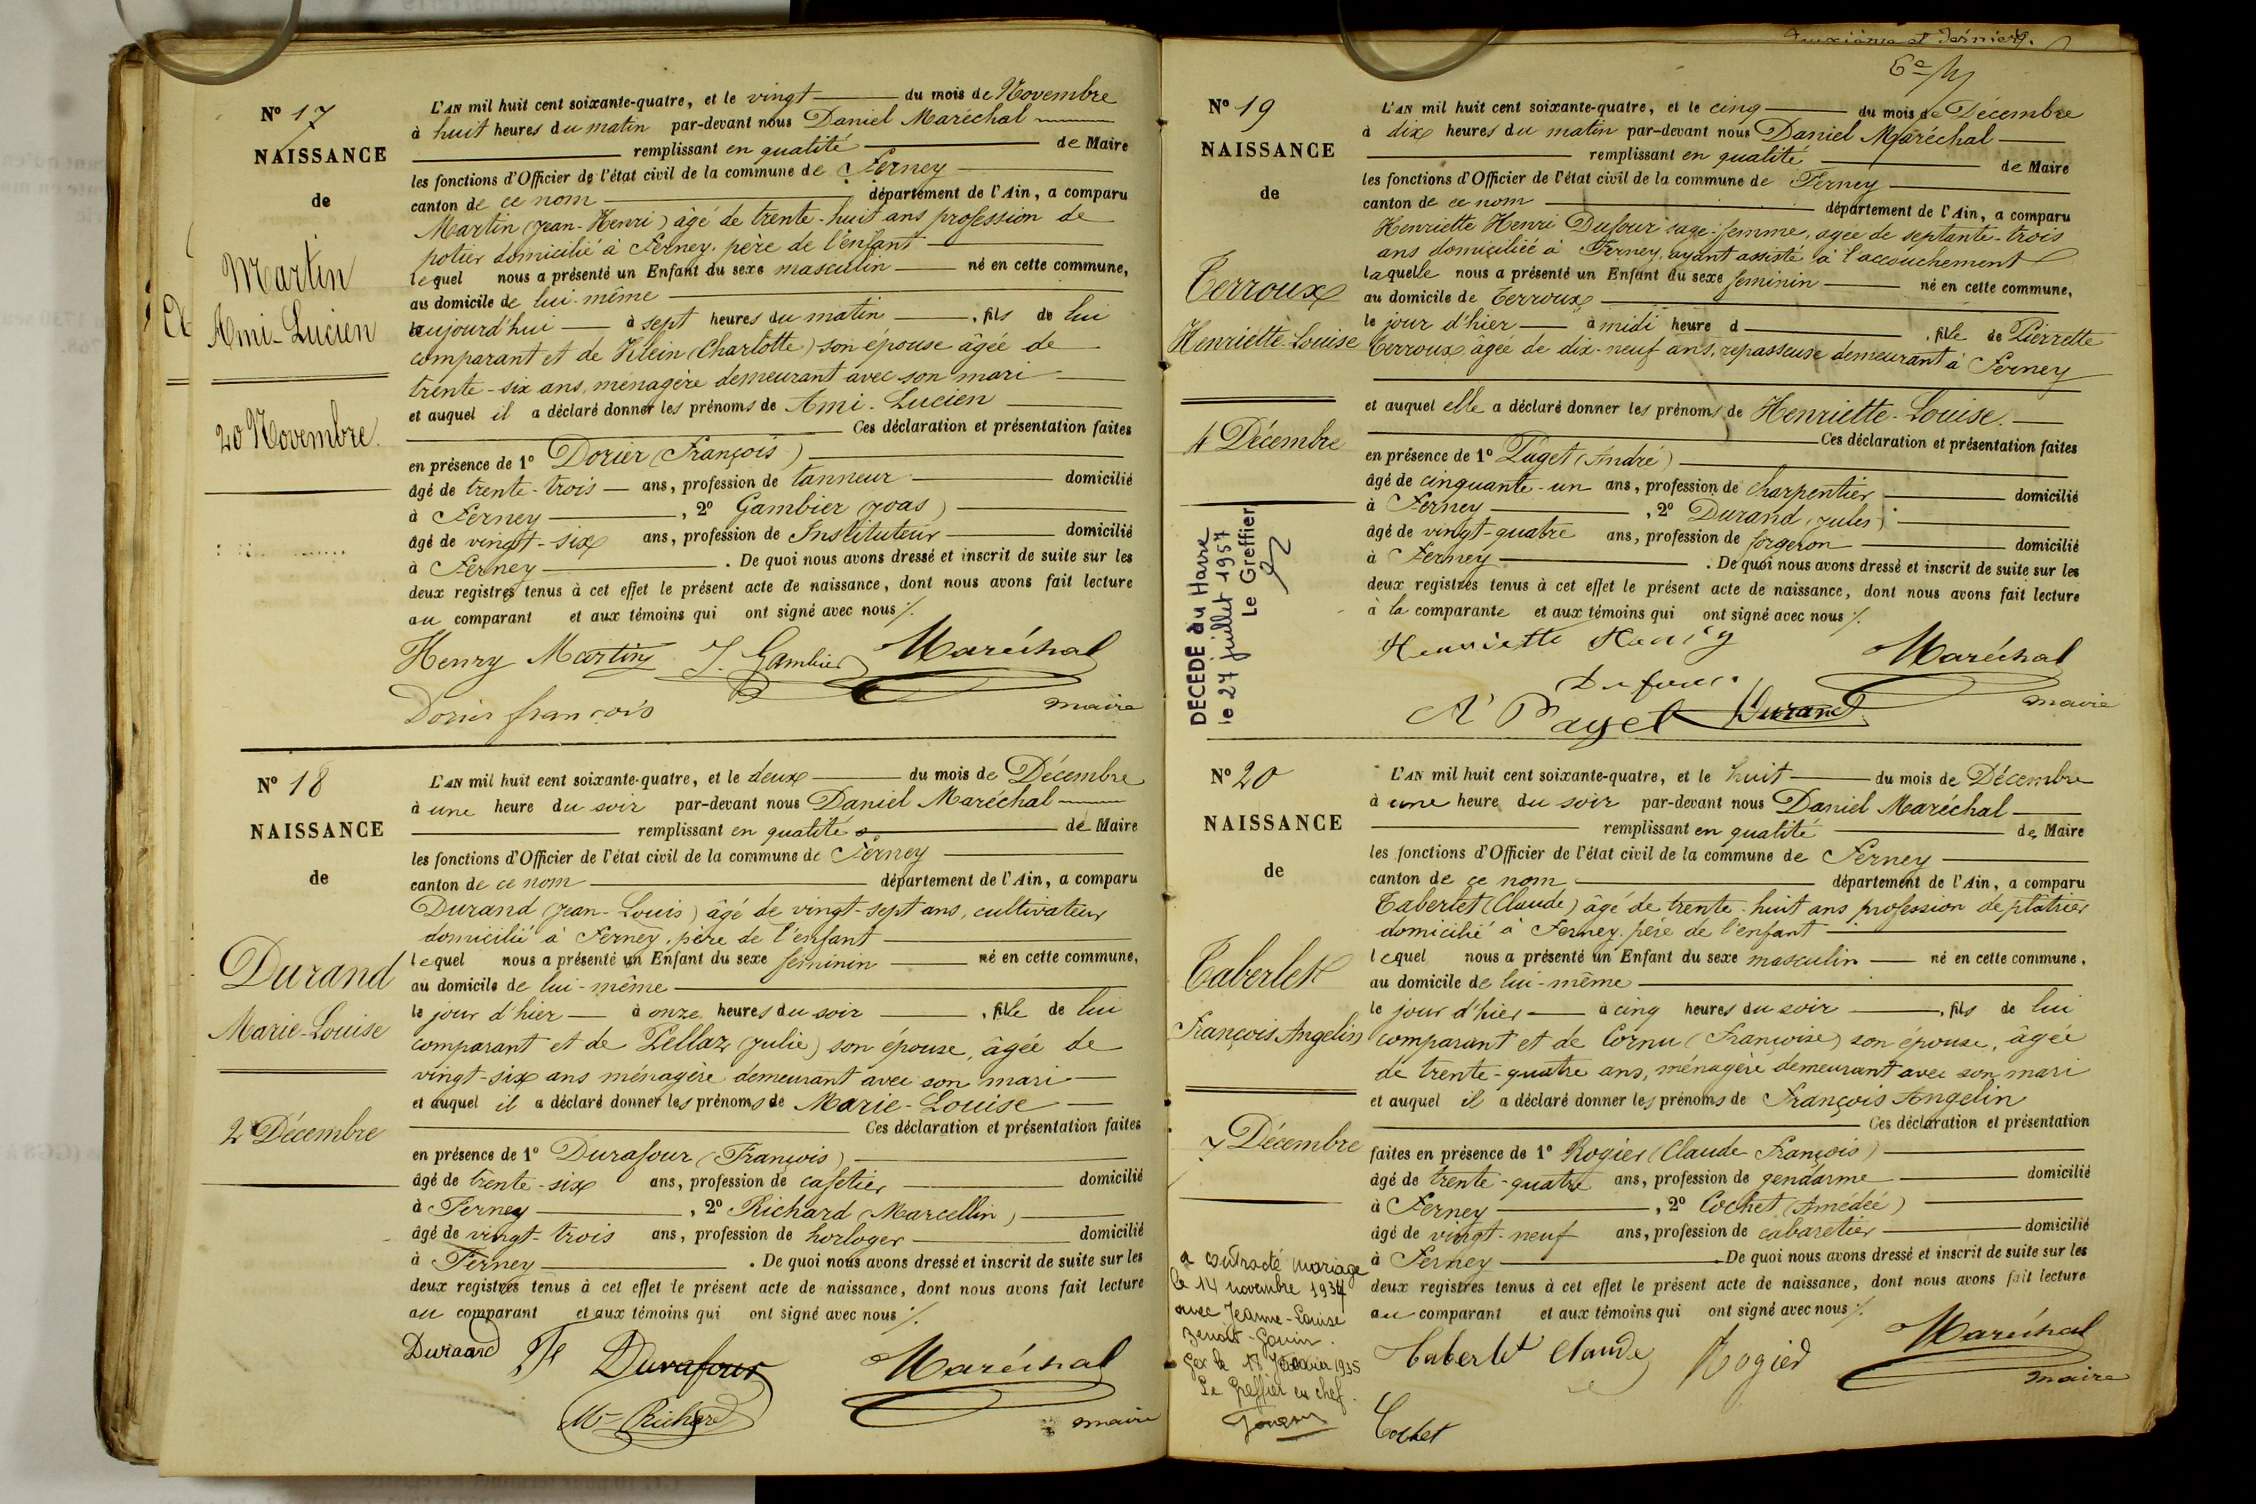 N° 17
NAISSANCE
de
Martin
Ami-Lucien
20 Novembre.
L'AN mil huit cent soixante-quatre, et le vingt du mois de Novembre
à huit heures du matin par-devant nous Daniel Maréchal
remplissant en qualité de Maire
les fonctions d'Officier de l'état civil de la commune de Ferney
canton de ce nom département de l'Ain, a comparu
Martin (Jean-Henri) âgé de trente-huit ans profession de
potier domicilié à Ferney, père de l'enfant
lequel nous a présenté un Enfant du sexe masculin né en cette commune,
au domicile de lui-même
aujourd'hui à sept heures du matin , fils de lui
comparant et de Klein (Charlotte) son épouse âgée de
trente-six ans, ménagère demeurant avec son mari
et auquel il a déclaré donner les prénoms de Ami-Lucien
Ces déclaration et présentation faites
en présence de 1° Dorier (François)
âgé de trente-trois ans, profession de tanneur domicilié
à Ferney , 2° Gambier (Joas)
âgé de vingt-six ans, profession de Instituteur domicilié
à Ferney . De quoi nous avons dressé et inscrit de suite sur les
deux registres tenus à cet effet le présent acte de naissance, dont nous avons fait lecture
au comparant et aux témoins qui ont signé avec nous ⁒
Henry Martin J. Gambier Maréchal
Dorier françois maire
N° 18
NAISSANCE
de
Durand
Marie-Louise
2 Décembre
L'AN mil huit cent soixante-quatre, et le deux du mois de Décembre
à une heure du soir par-devant nous Daniel Maréchal
remplissant en qualité de Maire
les fonctions d'Officier de l'état civil de la commune de Ferney
canton de ce nom département de l'Ain, a comparu
Durand (Jean-Louis) âgé de vingt-sept ans, cultivateur
domicilié à Ferney, père de l'enfant
lequel nous a présenté un Enfant du sexe feminin né en cette commune,
au domicile de lui-même
le jour d'hier à onze heures du soir , fille de lui
comparant et de Pellaz (Julie) son épouse, âgée de
vingt-six ans ménagère demeurant avec son mari
et auquel il a déclaré donner les prénoms de Marie-Louise
Ces déclaration et présentation faites
en présence de 1° Durafour (François)
âgé de trente-six ans, profession de cafetier domicilié
à Ferney , 2° Richard (Marcellin)
âgé de vingt-trois ans, profession de horloger domicilié
à Ferney . De quoi nous avons dressé et inscrit de suite sur les
deux registres tenus à cet effet le présent acte de naissance, dont nous avons fait lecture
au comparant et aux témoins qui ont signé avec nous ⁒
Durand Durafour Maréchal
Richard maire
deuxième et dernier
N° 19
NAISSANCE
de
Terroux
Henriette-Louise
4 Décembre
DECEDE au Havre
le 27 juillet 1957
Le Greffier
L'AN mil huit cent soixante-quatre, et le cinq du mois de Décembre
à dix heures du matin par-devant nous Daniel Maréchal
remplissant en qualité de Maire
les fonctions d'Officier de l'état civil de la commune de Ferney
canton de ce nom département de l'Ain, a comparu
Henriette Henri Dufour sage-femme, agée de septante-trois
ans domiciliée à Ferney, ayant assisté à l'accouchement
laquelle nous a présenté un Enfant du sexe feminin né en cette commune,
au domicile de Terroux
le jour d'hier à midi heure d , fille de Pierrette
Terroux âgée de dix-neuf ans, repasseuse demeurant à Ferney
et auquel elle a déclaré donner les prénoms de Henriette-Louise.
Ces déclaration et présentation faites
en présence de 1° Paget (André)
âgé de cinquante-un ans, profession de charpentier domicilié
à Ferney , 2° Durand (Jules)
âgé de vingt-quatre ans, profession de forgeron domicilié
à Ferney . De quoi nous avons dressé et inscrit de suite sur les
deux registres tenus à cet effet le présent acte de naissance, dont nous avons fait lecture
à la comparante et aux témoins qui ont signé avec nous ⁒
Henriette Henry Maréchal
Dufour maire
A Paget Durand
N° 20
NAISSANCE
de
Taberlet
François Angelin
7 Décembre
a contracté mariage
le 14 novembre 1934
avec Jeanne-Louise
Gex le 18 1935
Le Greffier en chef.
L'AN mil huit cent soixante-quatre, et le huit du mois de Décembre
à une heure du soir par-devant nous Daniel Maréchal
remplissant en qualité de Maire
les fonctions d'Officier de l'état civil de la commune de Ferney
canton de ce nom département de l'Ain, a comparu
Taberlet (Claude) âgé de trente-huit ans profession de plâtrier
domicilié à Ferney, père de l'enfant
lequel nous a présenté un Enfant du sexe masculin né en cette commune,
au domicile de lui-même
le jour d'hier à cinq heures du soir , fils de lui
comparant et de Cornu (Françoise) son épouse, âgée
de trente-quatre ans, ménagère demeurant avec son mari
et auquel il a déclaré donner les prénoms de François Angelin
Ces déclaration et présentation
faites en présence de 1° Rogier (Claude François)
âgé de trente-quatre ans, profession de gendarme domicilié
à Ferney , 2° Cochet (Amédée)
âgé de vingt-neuf ans, profession de cabaretier domicilié
à Ferney . De quoi nous avons dressé et inscrit de suite sur les
deux registres tenus à cet effet le présent acte de naissance, dont nous avons fait lecture
au comparant et aux témoins qui ont signé avec nous ⁒
Taberlet Claude Rogier Maréchal
Cochet maire